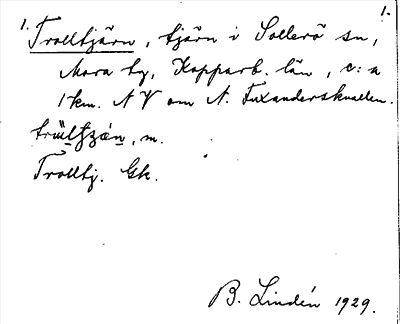 1.
1. Trolltjärn, tjärn i Sollerö sn,
Mora tg, Kopparb. län, c:a
1 km. NV om N. Fuxanderskvallen.
m.
Trolltj. Gk.
B. Lindén 1929.